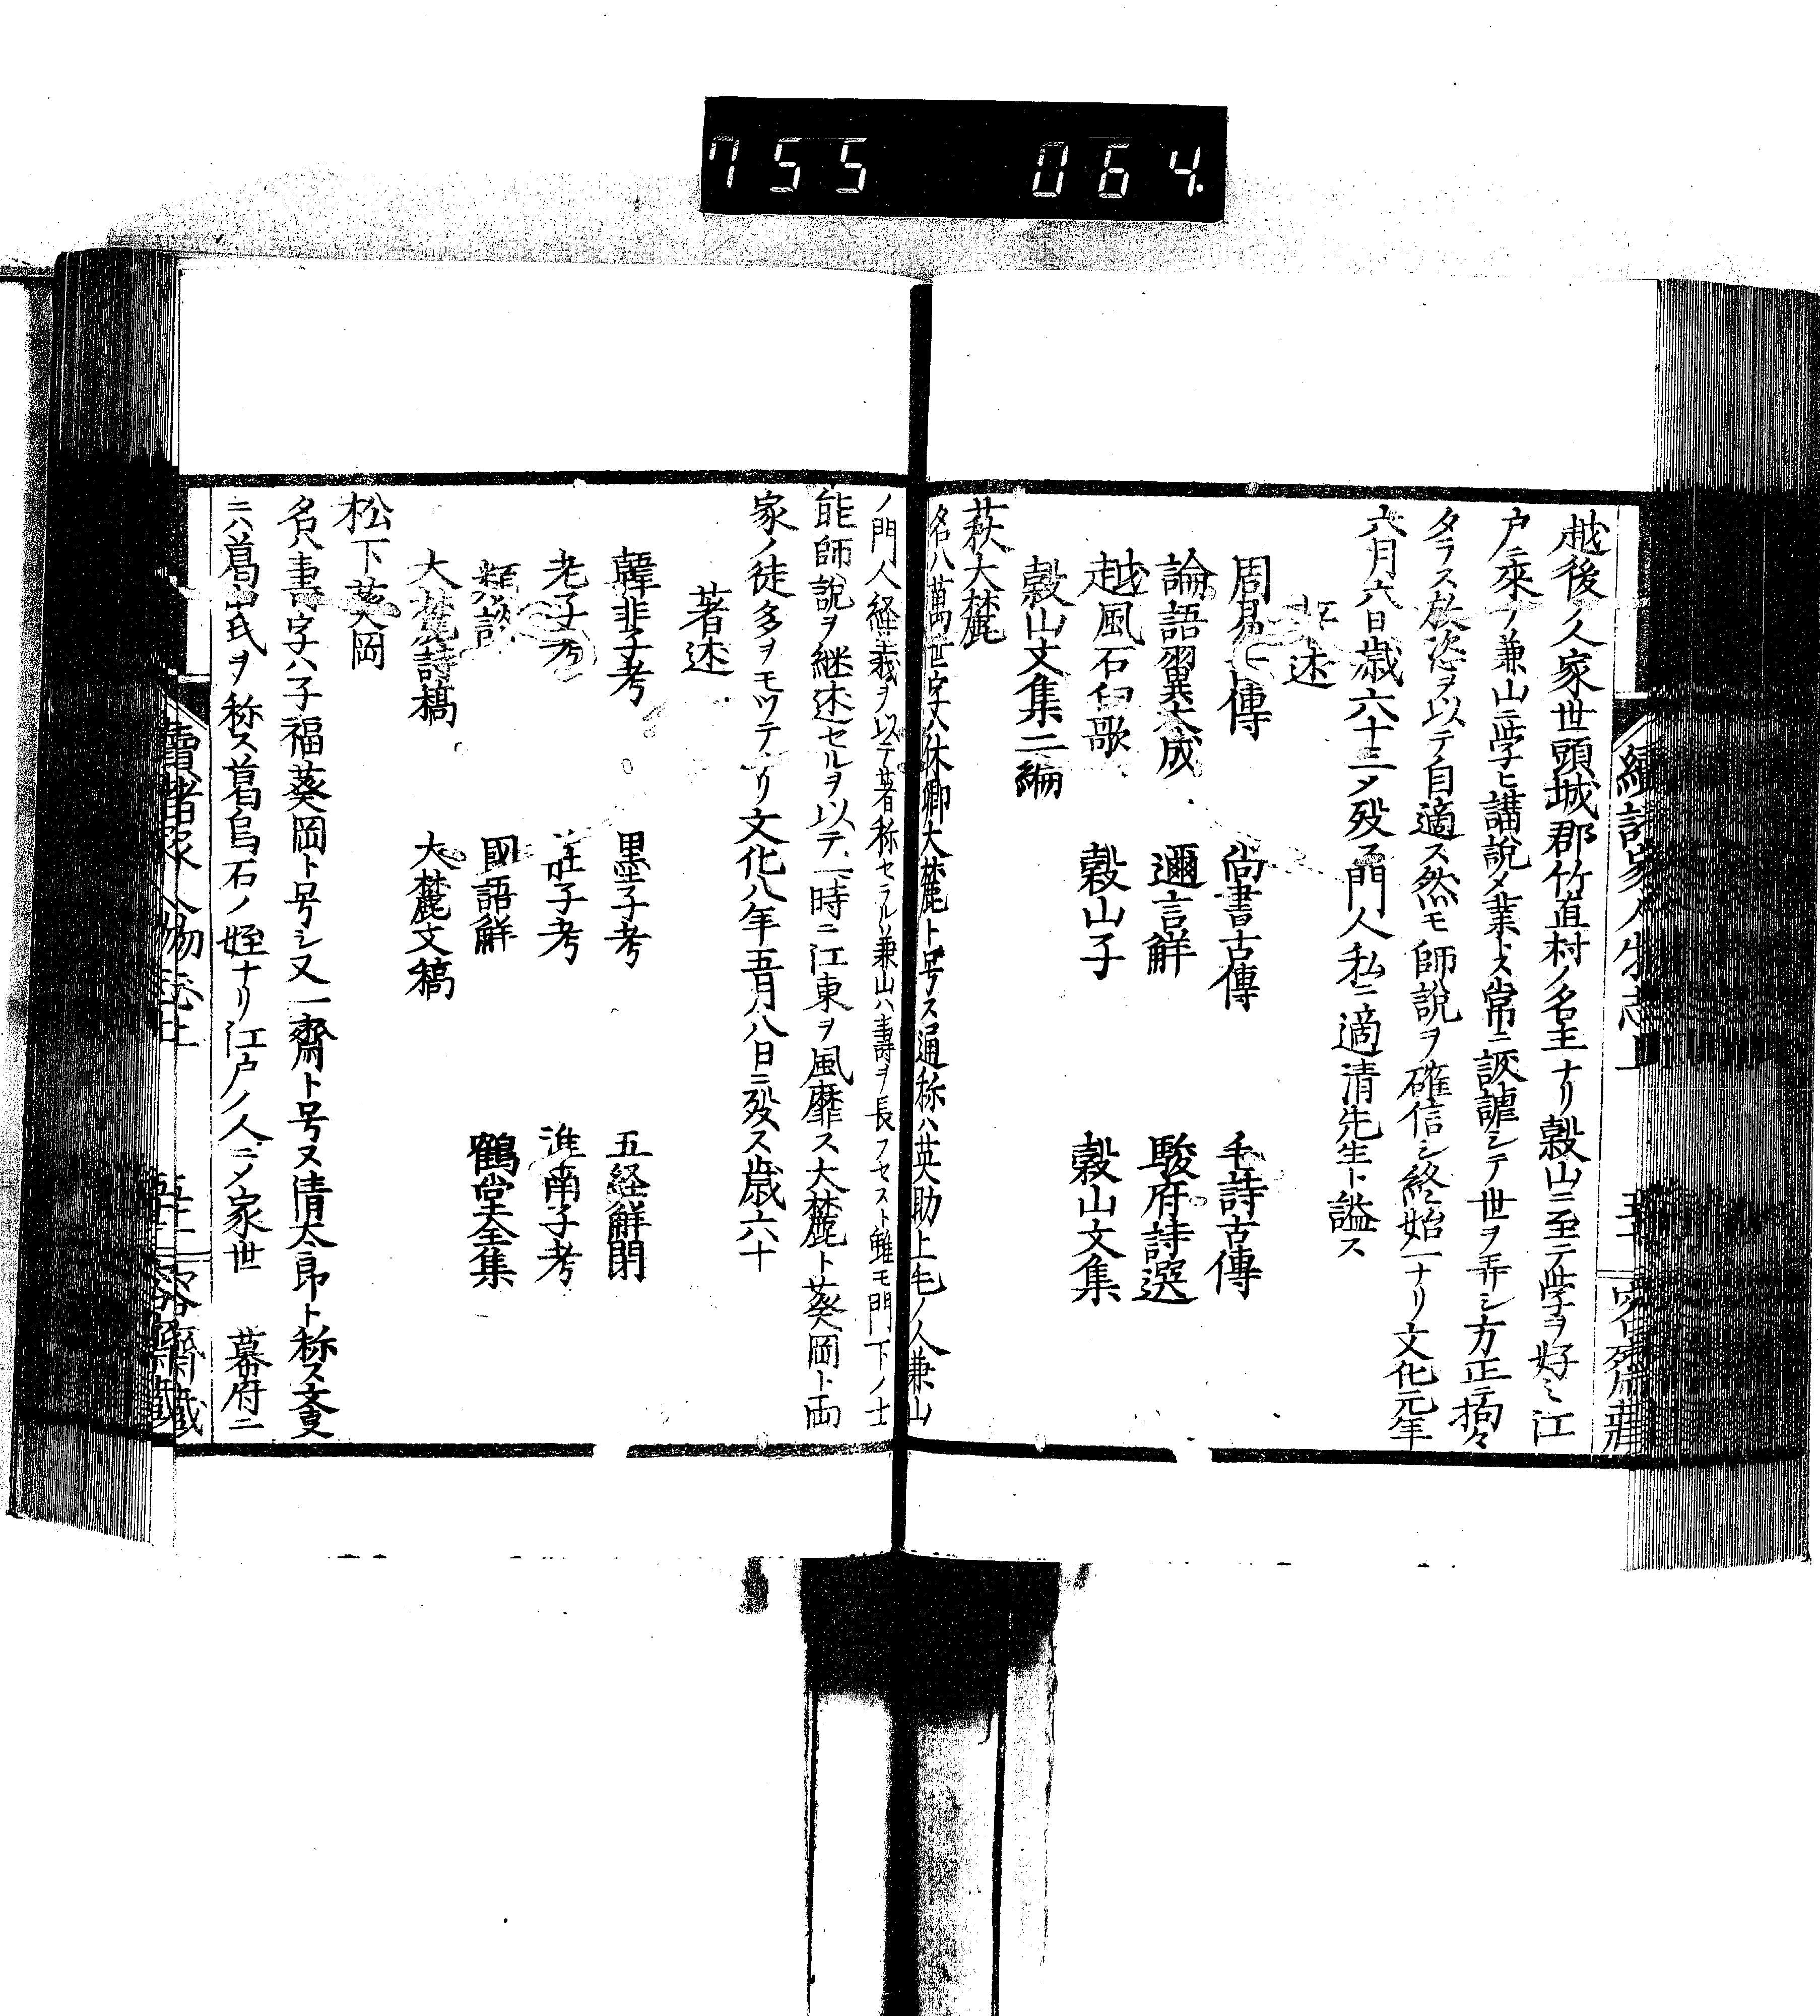 755 064
越後ノ人家世頭城郡竹直村ノ名主ナリ穀山ニ至テ学ヲ好ミ江
戸ニ来ツテ兼山ニ学ヒ講説ヲ業トス常ニ詼謔シテ世ヲ弄シ方正ニ拘々
タラス放恣ヲ以テ自適ス然ﾓ師説ヲ確信シ終始一ナリ文化元年
六月六日歳六十三ニシテ歿ス門人私ニ適清先生ト謚ス
著述
周易古傳 尚書古傳 毛詩古傳
論語翼大成 邇言解 駿府詩選
越風石臼歌 穀山子 穀山文集
穀山文集二編
萩大麓
名ハ萬世字ハ休卿大麓ト号ス通称ハ英助上毛ノ人兼山
ノ門人経義ヲ以テ著称セラル兼山ハ壽ヲ長フセスト雖モ門下ノ士
能師説ヲ継述セルヲ以テ一時ニ江東ヲ風靡ス大麓ト葵岡ト両
家ノ徒多ヲモツテナリ文化八年五月八日ニ歿ス歳六十
著述
韓非子考 墨子考 五経解閉
老子考 荘子考 淮南子考
類談 國語解 鶴堂全集
大麓詩稿 大麓文稿
松下葵岡
名ハ壽字ハ子福葵岡ト号シ又一齋ト号ス清太郎ト称ス父
ニ八葛山氏ヲ称ス葛烏石ノ姪ナリ江戸ノ人ニシテ家世 幕府ニ